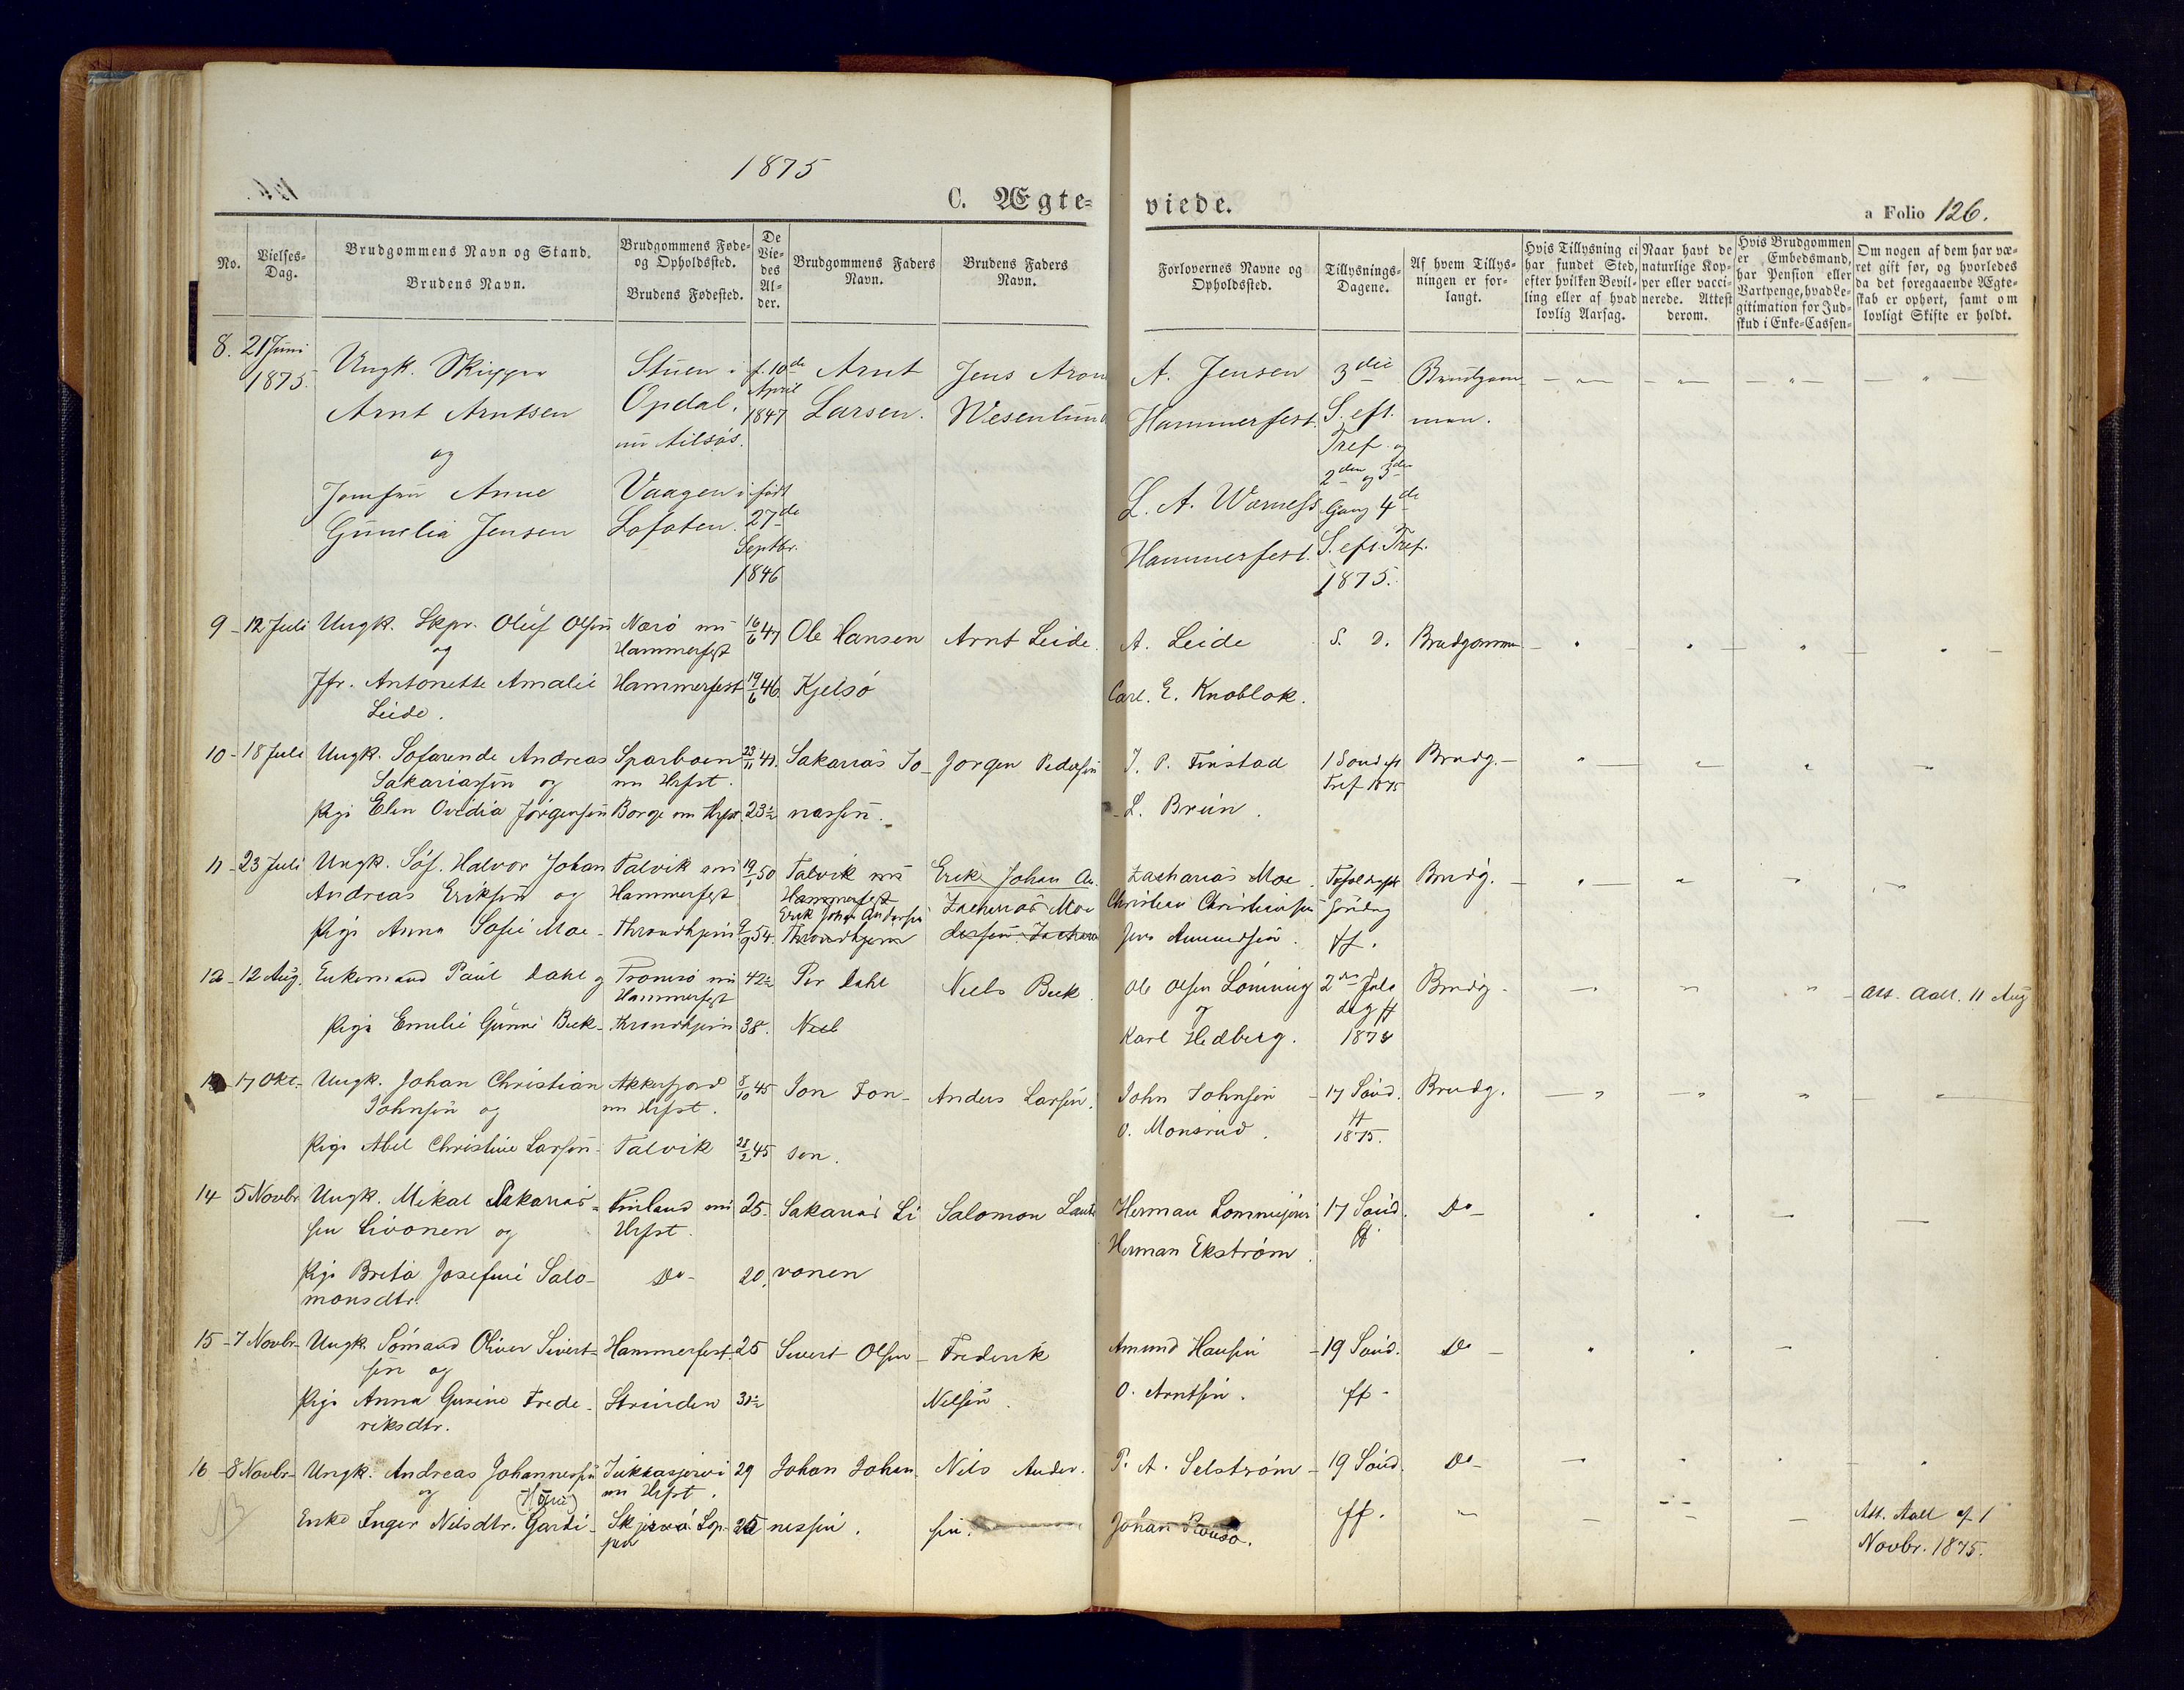 1875
C. Ægte-
viede.
a Folio 126.
No.
Vielses-
Dag.
Brudgommens Navn og Stand.
Brudens Navn.
Brudgommens Føde-
og Opholdssted.
Brudens Fødested.
De
Vie-
des
Al-
der.
Brudgommens Faders
Navn.
Brudens Faders
Navn.
Forlovernes Navne og
Opholdssted.
Tillysnings-
Dagene.
Af hvem Tillys-
ningen er for-
langt.
Hvis Tillysning ei
har fundet Sted,
efter hvilken Bevil-
ling eller af hvad
lovlig Aarsag.
Naar havt de
naturlige Kop-
per eller vacci-
nerede. Attest
derom.
Hvis Brudgommen
er Embedsmand,
har Pension eller
Vartpenge, hvad Le-
gitimation for Ind-
skud i Enke-Cassen-
Om nogen af dem har væ-
ret gift før, og hvorledes
da det foregaaende Ægte-
skab er ophørt, samt om
lovligt Skifte er holdt.
8. 21 Juni Ungk. Skipper Stuen i f. 10de Arnt Jens Aron A. Jensen 3die Brudgom-
1875. Arnt Arntsen Opdal, April 1847 Larsen. Wesenlund Hammerfest. S. eft. men.
og nu Tref. og
Jomfru Anne Vaagen i født L. A. Warness 2den og 3die Gang 4de
Gunelia Jensen Lofoten. 27de Septbr. Hammerfest. S. eft. Tref.
1846 1875.
9 - 12 Juli Ungk. Skpr. Oluf Olsen Nærø nu 16/6 47 Ole Hansen Arnt Leide. A. Leide S. D. Brudgommen
og Hammerfest
Jfr. Antonette Amalie Hammerfest 19/6 46. Kjelsø Carl. E. Knoblok.
Leide.
10 - 18 Juli Ungk. Søfarende Andreas Sparboen 23/11 41. Sakarias Jo- Jørgen Pedersen J. P. Finstad 1 Sond eft Brudg.
Sakariassen og nu Hfst. Tref 1875
Pige Elen Ovidia Jørgensen Borge nu Hfst. 23½ nassen. L. Brun.
11 - 23 Juli Ungk. Søf. Halvor Johan Talvik nu 19/1 50 Talvik nu Erik Johan An. Zacharias Moe Brudg.
Andreas Eriksen og Hammerfest Hammerfest Zacharias Moe Christian Christiansen
Erik Johan Andersen
Pige Anna Sofie Moe - Throndhjem 9/9 54. Throndhjem dersen. Jens Amundsen. ff.
12 - 12 Aug. Enkemand Paul Dahl og Tromsø nu 42½ Per Dahl Niels Buk. Ole Olsen Lønning 2den Jule Brudg. Att. Aall. 11 Aug
Hammerfest og dag ff
Pige Emilie Gunni Buk - Throndhjem 38. Niel Karl Hedberg.
17 Okt. Ungk. Johan Christian Akkarfjord 8/10 45 Jon Jon- Anders Larsen. John Johnsen - 17 Sønd. Brudg.
Johnsen og nu Hfst. O. Monsrud. ff
Pige Abel Christine Larsen - Talvik 28/2 45 sen. 1875.
14 5 Novbr Ungk. Mikal Sakarias- Finland nu 25. Sakarias Li Salomon Herman 17 Sønd. Do
sen Livonen og Hfst. Herman Ekstrøm. ff.
Pige Brita Josefine Salo- Do 20. vonen
monsdtr.
15 - 7 Novbr. Ungk. Sømand Oliver Sivert- Hammerfest. 25 Sivert Olsen - Frederik Amund Hansen - 19 Sønd. Do
sen og
Pige Anna Gurine Frede- Strinden Nilsen. O. Arntsen. ff.
riksdtr.
16 - 8 Novbr. Ungk. Andreas Johannessen Jukkasjervi 29 Johan Johan. Nils Ander. P. A. Selstrøm - 19 Sønd. Do
og nu Hfst.
Enke Inger Nilsdtr. Skjervø 25 nessen. sen. Johan ff. Att. Aall af 1
Novbr. 1875.